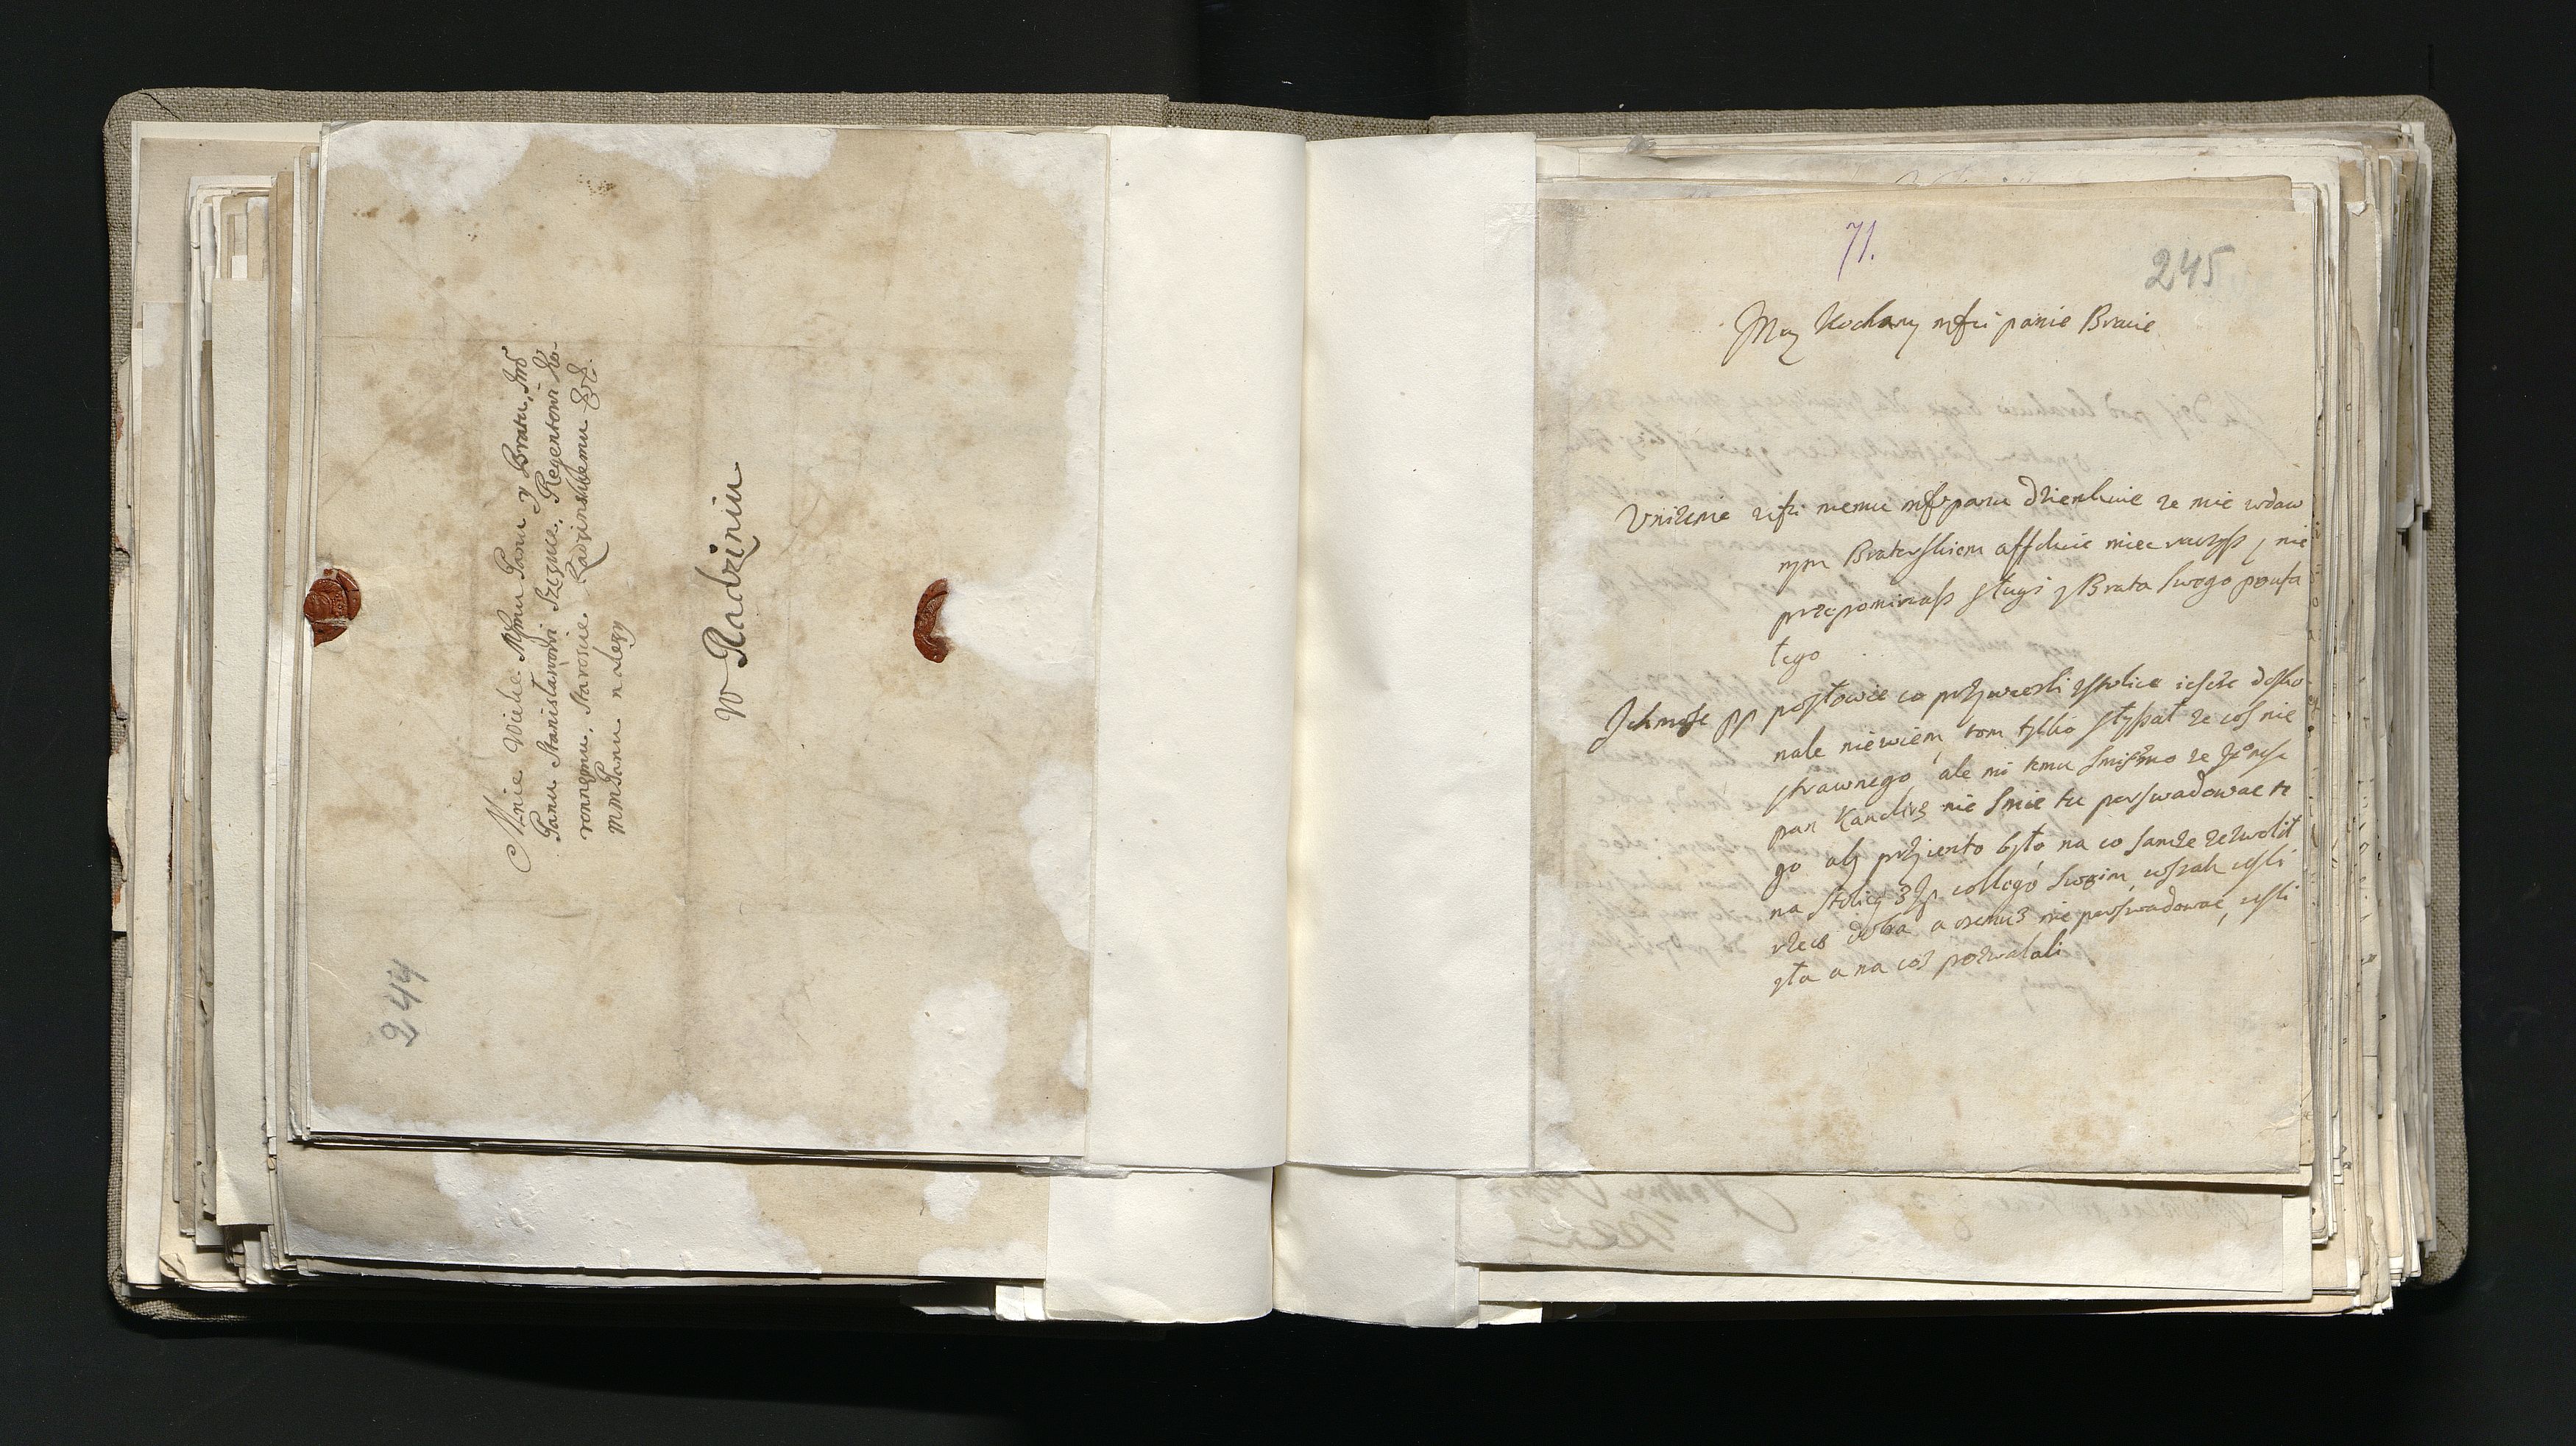 244
Mnie Wielce Mśmu Panu y Bratu, Jmċ
Panu Stanisławowi Szczuce, Regentowi Ko-
ronnemu, Staroscie Radzinskiemu &c.
MMPanu nalezy
W Radziniu
71.
245
Moy Kochany mści panie Bracie
Unizenie memu panu dziekuie ze mie wdaw
nym Braterskiem affekcie miec raczysz, nie
przepominasz sługi y Brata swego poufa
łego
Ichmość pp posłowie co przywiezli zstolice ieszcze dosko
nale niewiem, tom tylko słyszał ze cos nie
strawnego, ale mi temu ze
pan Kanclirz nie smie tu perswadowac te
go aby przyiento było na co samze zezwolił
na stolicy z collegą swoim, wszak iesli
rzecz dobra a czemuz nie perswadowac, iesli
zła a na coz pozwalali